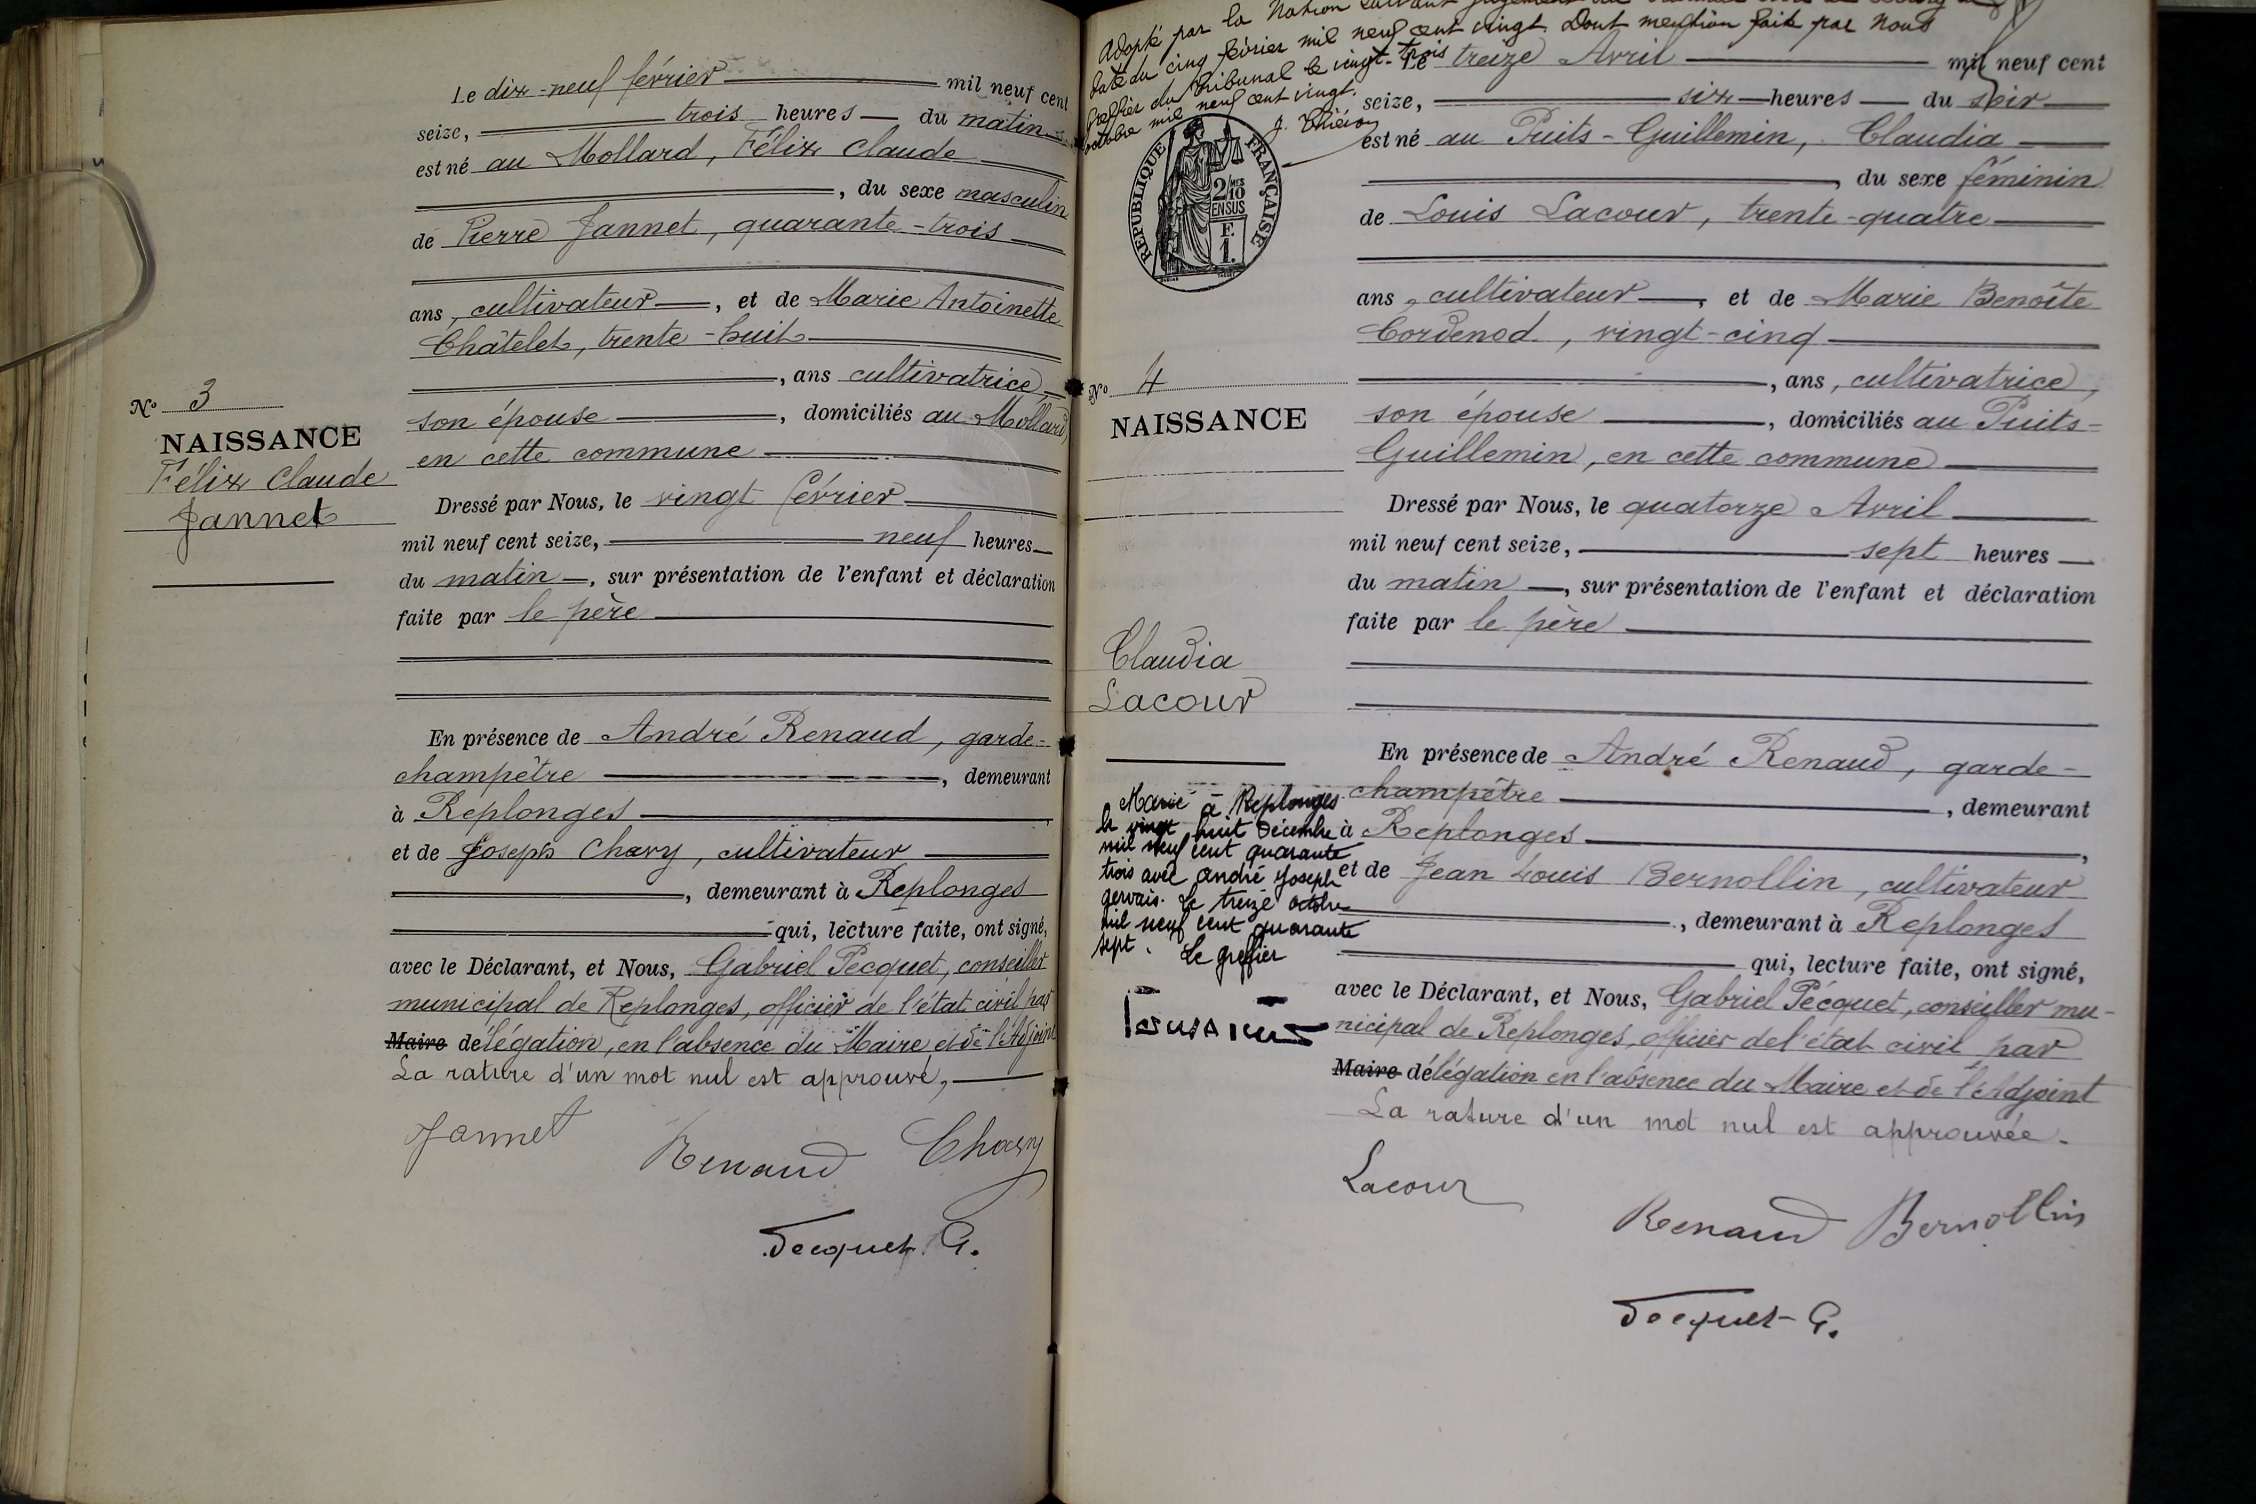 Le dix-neuf février mil neuf cent
seize, trois heures du matin
est né au Mollard, Félix Claude
, du sexe masculin
de Pierre Jannet, quarante-trois
ans, cultivateur, et de Marie Antoinette
Châtelet, trente-huit
, ans cultivatrice,
son épouse, domiciliés au Mollard,
en cette commune
Nº 3
NAISSANCE
Félix Claude
Jannet
Dressé par Nous, le vingt février
mil neuf cent seize, neuf heures
du matin, sur présentation de l'enfant et déclaration
faite par le père
En présence de André Renaud, garde-
champêtre, demeurant
à Replonges
et de Joseph Chavy, cultivateur
, demeurant à Replonges
qui, lecture faite, ont signé,
avec le Déclarant, et Nous, Gabriel Pécquet, conseiller
municipal de Replonges, officier de l'état civil par
Maire délégation, en l'absence du Maire et de l'Adjoint
La rature d'un mot nul est approuvé,
Jannet
Renaud
Chavy
Pecquet G.
Adopté par la Nation suivant jugement du
date du cinq février mil neuf cent vingt. Dont mention faite par Nous
greffier du Tribunal le vingt-trois
octobre mil neuf cent vingt.
REPUBLIQUE FRANÇAISE
2/10 MES
EN SUS
F.
1.
Le treize Avril mil neuf cent
seize, six heures du soir
est né au Puits-Guillemin, Claudia
, du sexe féminin
de Louis Lacour, trente-quatre
ans, cultivateur, et de Marie Benoîte
Cordenod, vingt-cinq
, ans, cultivatrice,
son épouse, domiciliés au Puits-
Guillemin, en cette commune
Nº 4
NAISSANCE
Claudia
Lacour
Dressé par Nous, le quatorze Avril
mil neuf cent seize, sept heures
du matin, sur présentation de l'enfant et déclaration
faite par le père
En présence de André Renaud, garde-
champêtre, demeurant
à Replonges,
et de Jean Louis Bernollin, cultivateur
, demeurant à Replonges
qui, lecture faite, ont signé,
avec le Déclarant, et Nous, Gabriel Pécquet, conseiller mu-
nicipal de Replonges, officier de l'état civil par
Maire délégation en l'absence du Maire et de l'Adjoint
La rature d'un mot nul est approuvée.
Marié à Replonges
le vingt huit Décembre
mil neuf cent quarante
trois avec André Joseph
Gervais. Le treize octobre
mil neuf cent quarante
sept. Le greffier
Lacour
Renaud
Bernollin
Pecquet G.